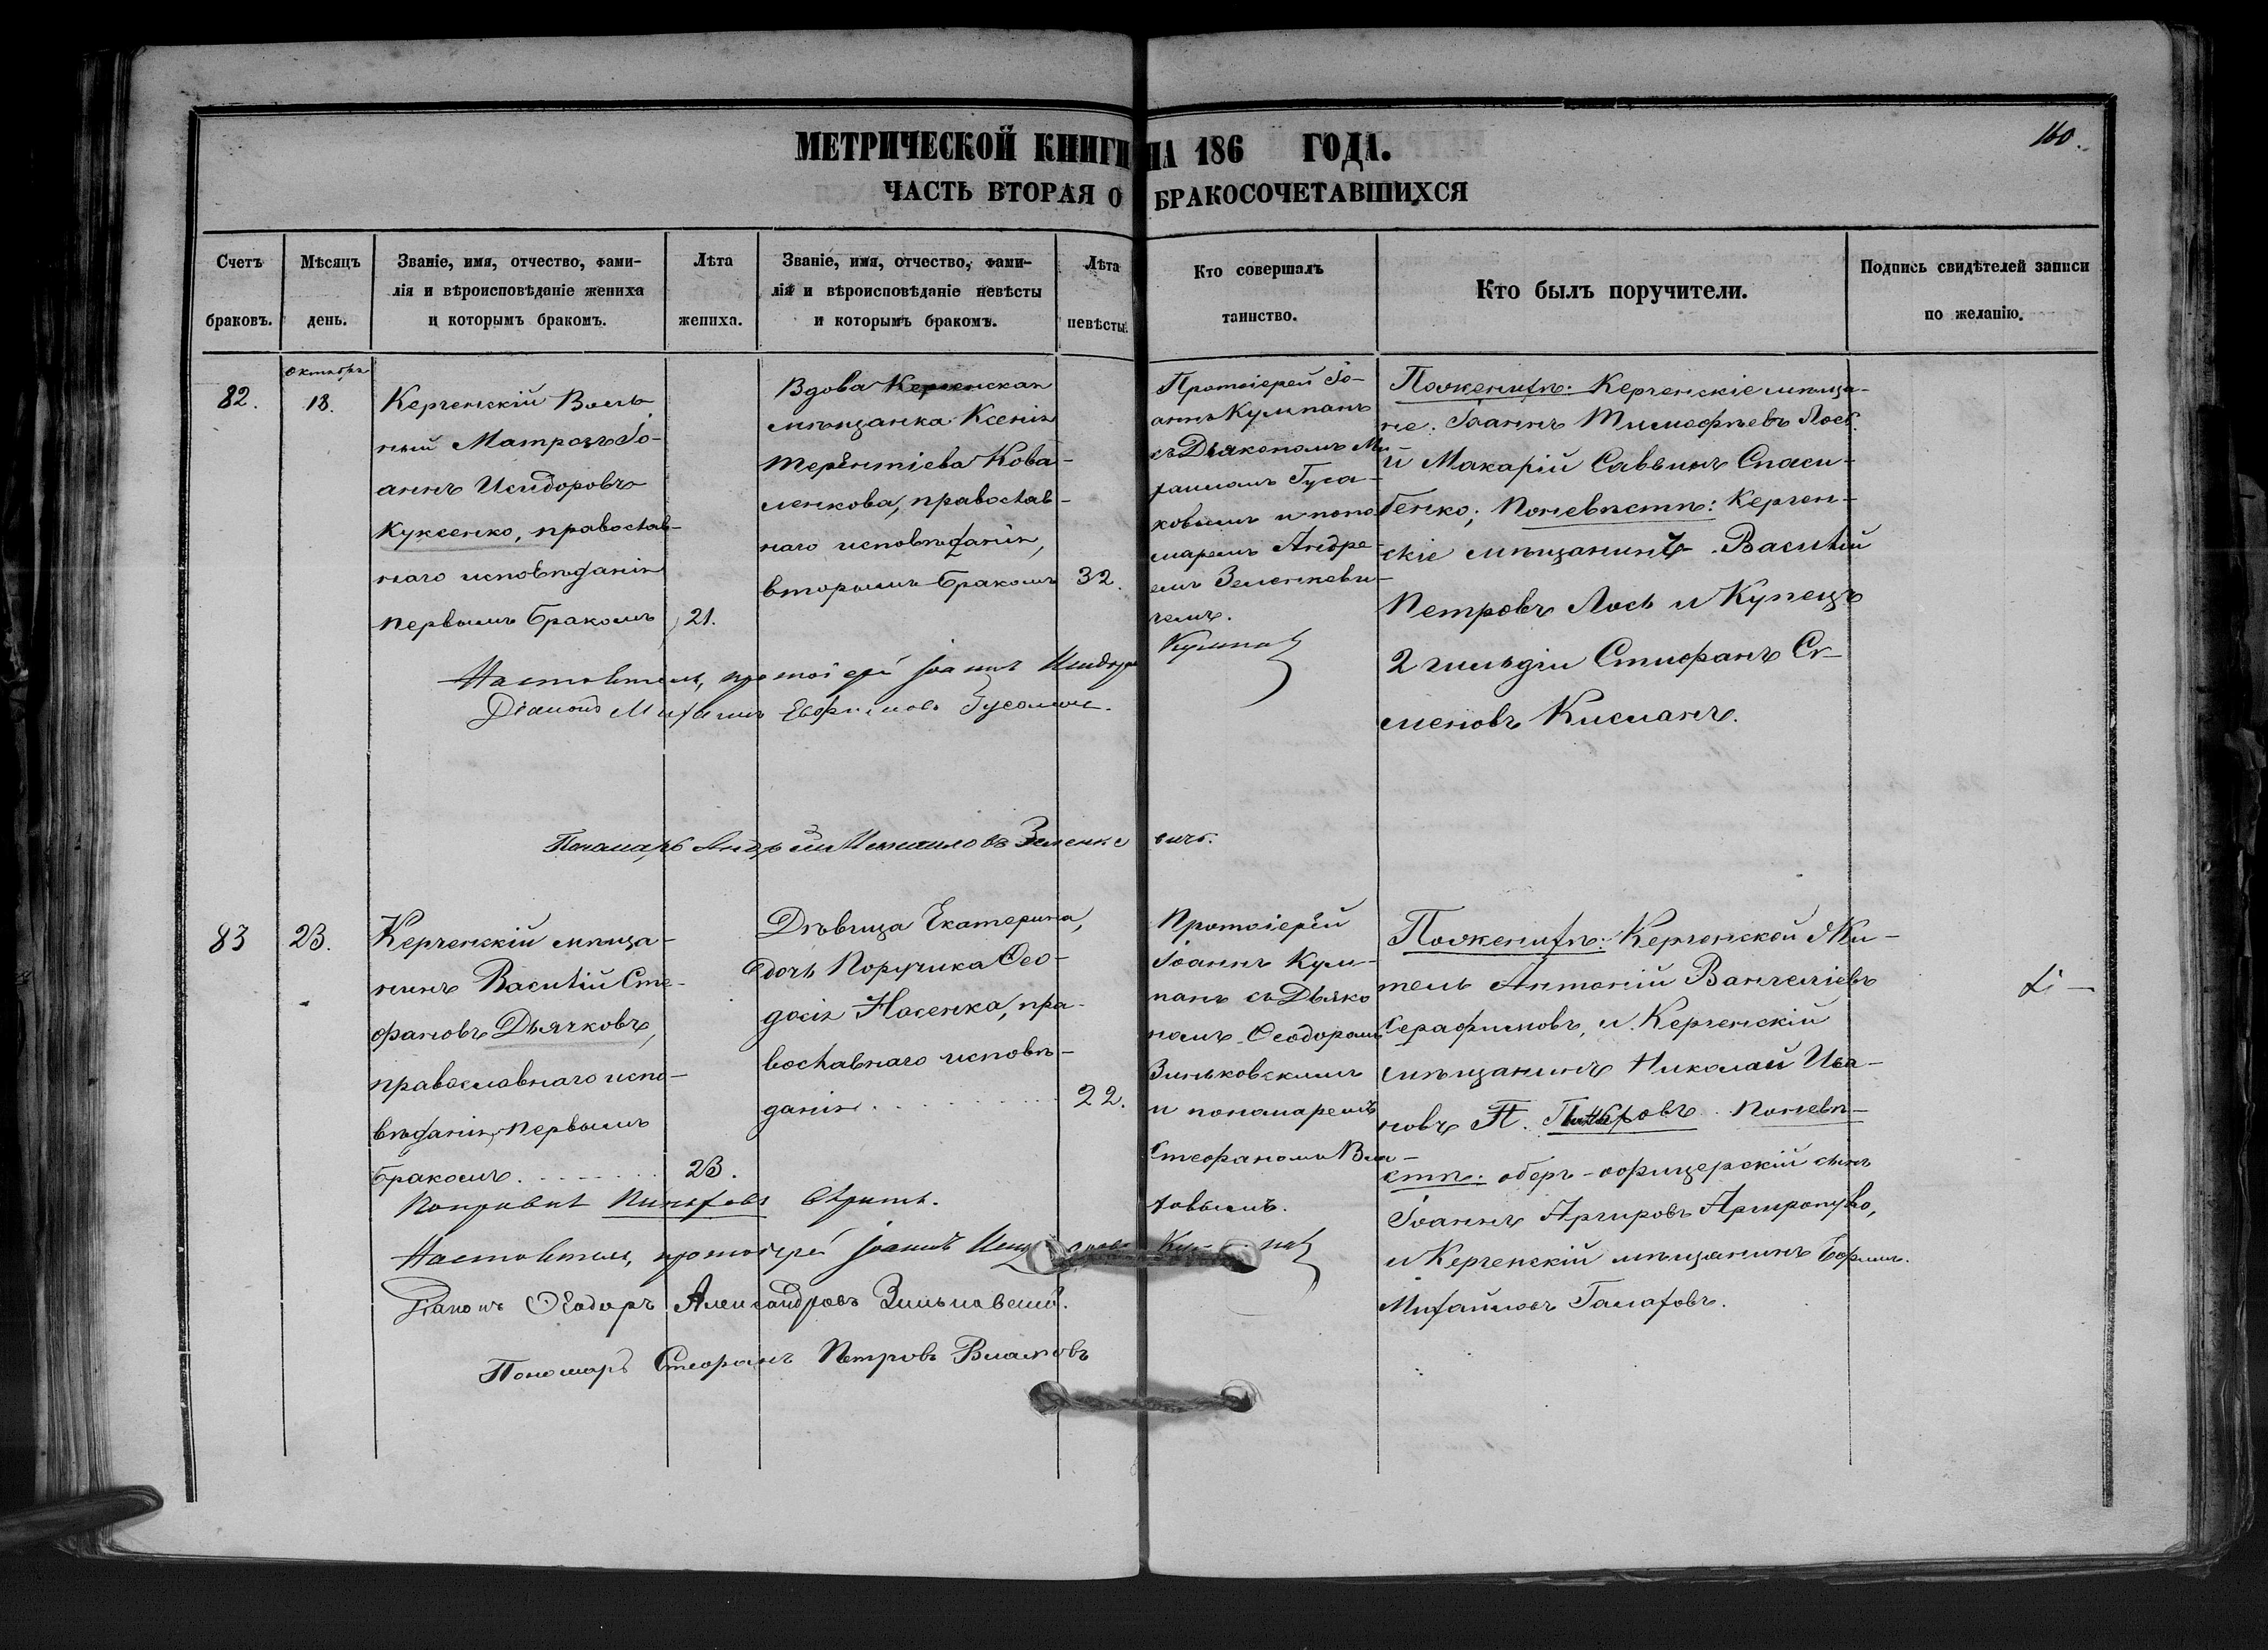 160.
МЕТРИЧЕСКОЙ КНИГИ НА 186 ГОДА.
ЧАСТЬ ВТОРАЯ О БРАКОСОЧЕТАВШИХСЯ
Счетъ браковъ.
Мѣсяцъ день.
Званіе, имя, отчество, фами-
лія и вѣроисповѣданіе жениха
и которымъ бракомъ.
Лѣта жениха.
Званіе, имя, отчество, фами-
лія и вѣроисповѣданіе невѣсты
и которымъ бракомъ.
Лѣта невѣсты.
Кто совершалъ
таинство.
Кто былъ поручители.
Подпись свидѣтелей записи
по желанію.
82.
Октября
18.
Керченскій Воль-
ный Матрозъ Іо-
аннъ Исидоровъ
Куксенко, православ-
наго исповѣданія
первымъ бракомъ
21.
Вдова Керченская
мѣщанка Ксенія
Терентіева Кова-
ленкова, православ-
наго исповѣданія,
вторымъ бракомъ
32.
Протоіерей Іо-
аннъ Кумпанъ
съ Діакономъ Ми-
хаиломъ Гуса-
ковымъ и поно-
маремъ Андре-
емъ Зеленкеви-
чемъ.
Кумпанъ
По женихѣ: Керченскіе мѣща-
не: Іоаннъ Тимофѣевъ Лось
и Макарій Саввинъ Спаси-
бенко; По невѣстѣ: Керчен-
скіе мѣщанинъ Василій
Петровъ Лось и Купецъ
2 гильдіи Стефанъ Се-
меновъ Кисманъ.
Настоятель, протоіерей Іоаннъ
Діаконъ Михаилъ Евфимовъ
Пономарь Андрей Зеленкевичъ.
83
23.
Керченскій мѣща-
нинъ Василій Сте-
фановъ Дьячковъ,
православнаго испо-
вѣданія, первымъ
бракомъ.
23.
Дѣвица Екатерина,
дочь Поручика Ѳео-
досія Носенка, пра-
вославнаго исповѣ-
данія
22.
Протоіерей
Іоаннъ Кум-
панъ съ Діако
номъ Ѳеодоромъ
Зиньковскимъ
и пономаремъ
Стефаномъ Вла-
совымъ.
По женихѣ: Керченской Жи-
тель Антоній Вангеліевъ
Серафимовъ, и Керченскій
мѣщанинъ Николай Ива-
новъ По невѣ-
стѣ: оберъ-офицерскій сынъ
Іоаннъ Аргировъ Аргиропуло,
и Керченскій мѣщанинъ Ефим.
Михайловъ Галаховъ.
Настоятель, протоіерей Іоаннъ
Діаконъ Ѳеодоръ Александровъ Зиньковскій.
Пономарь Стефанъ Петровъ Власовъ